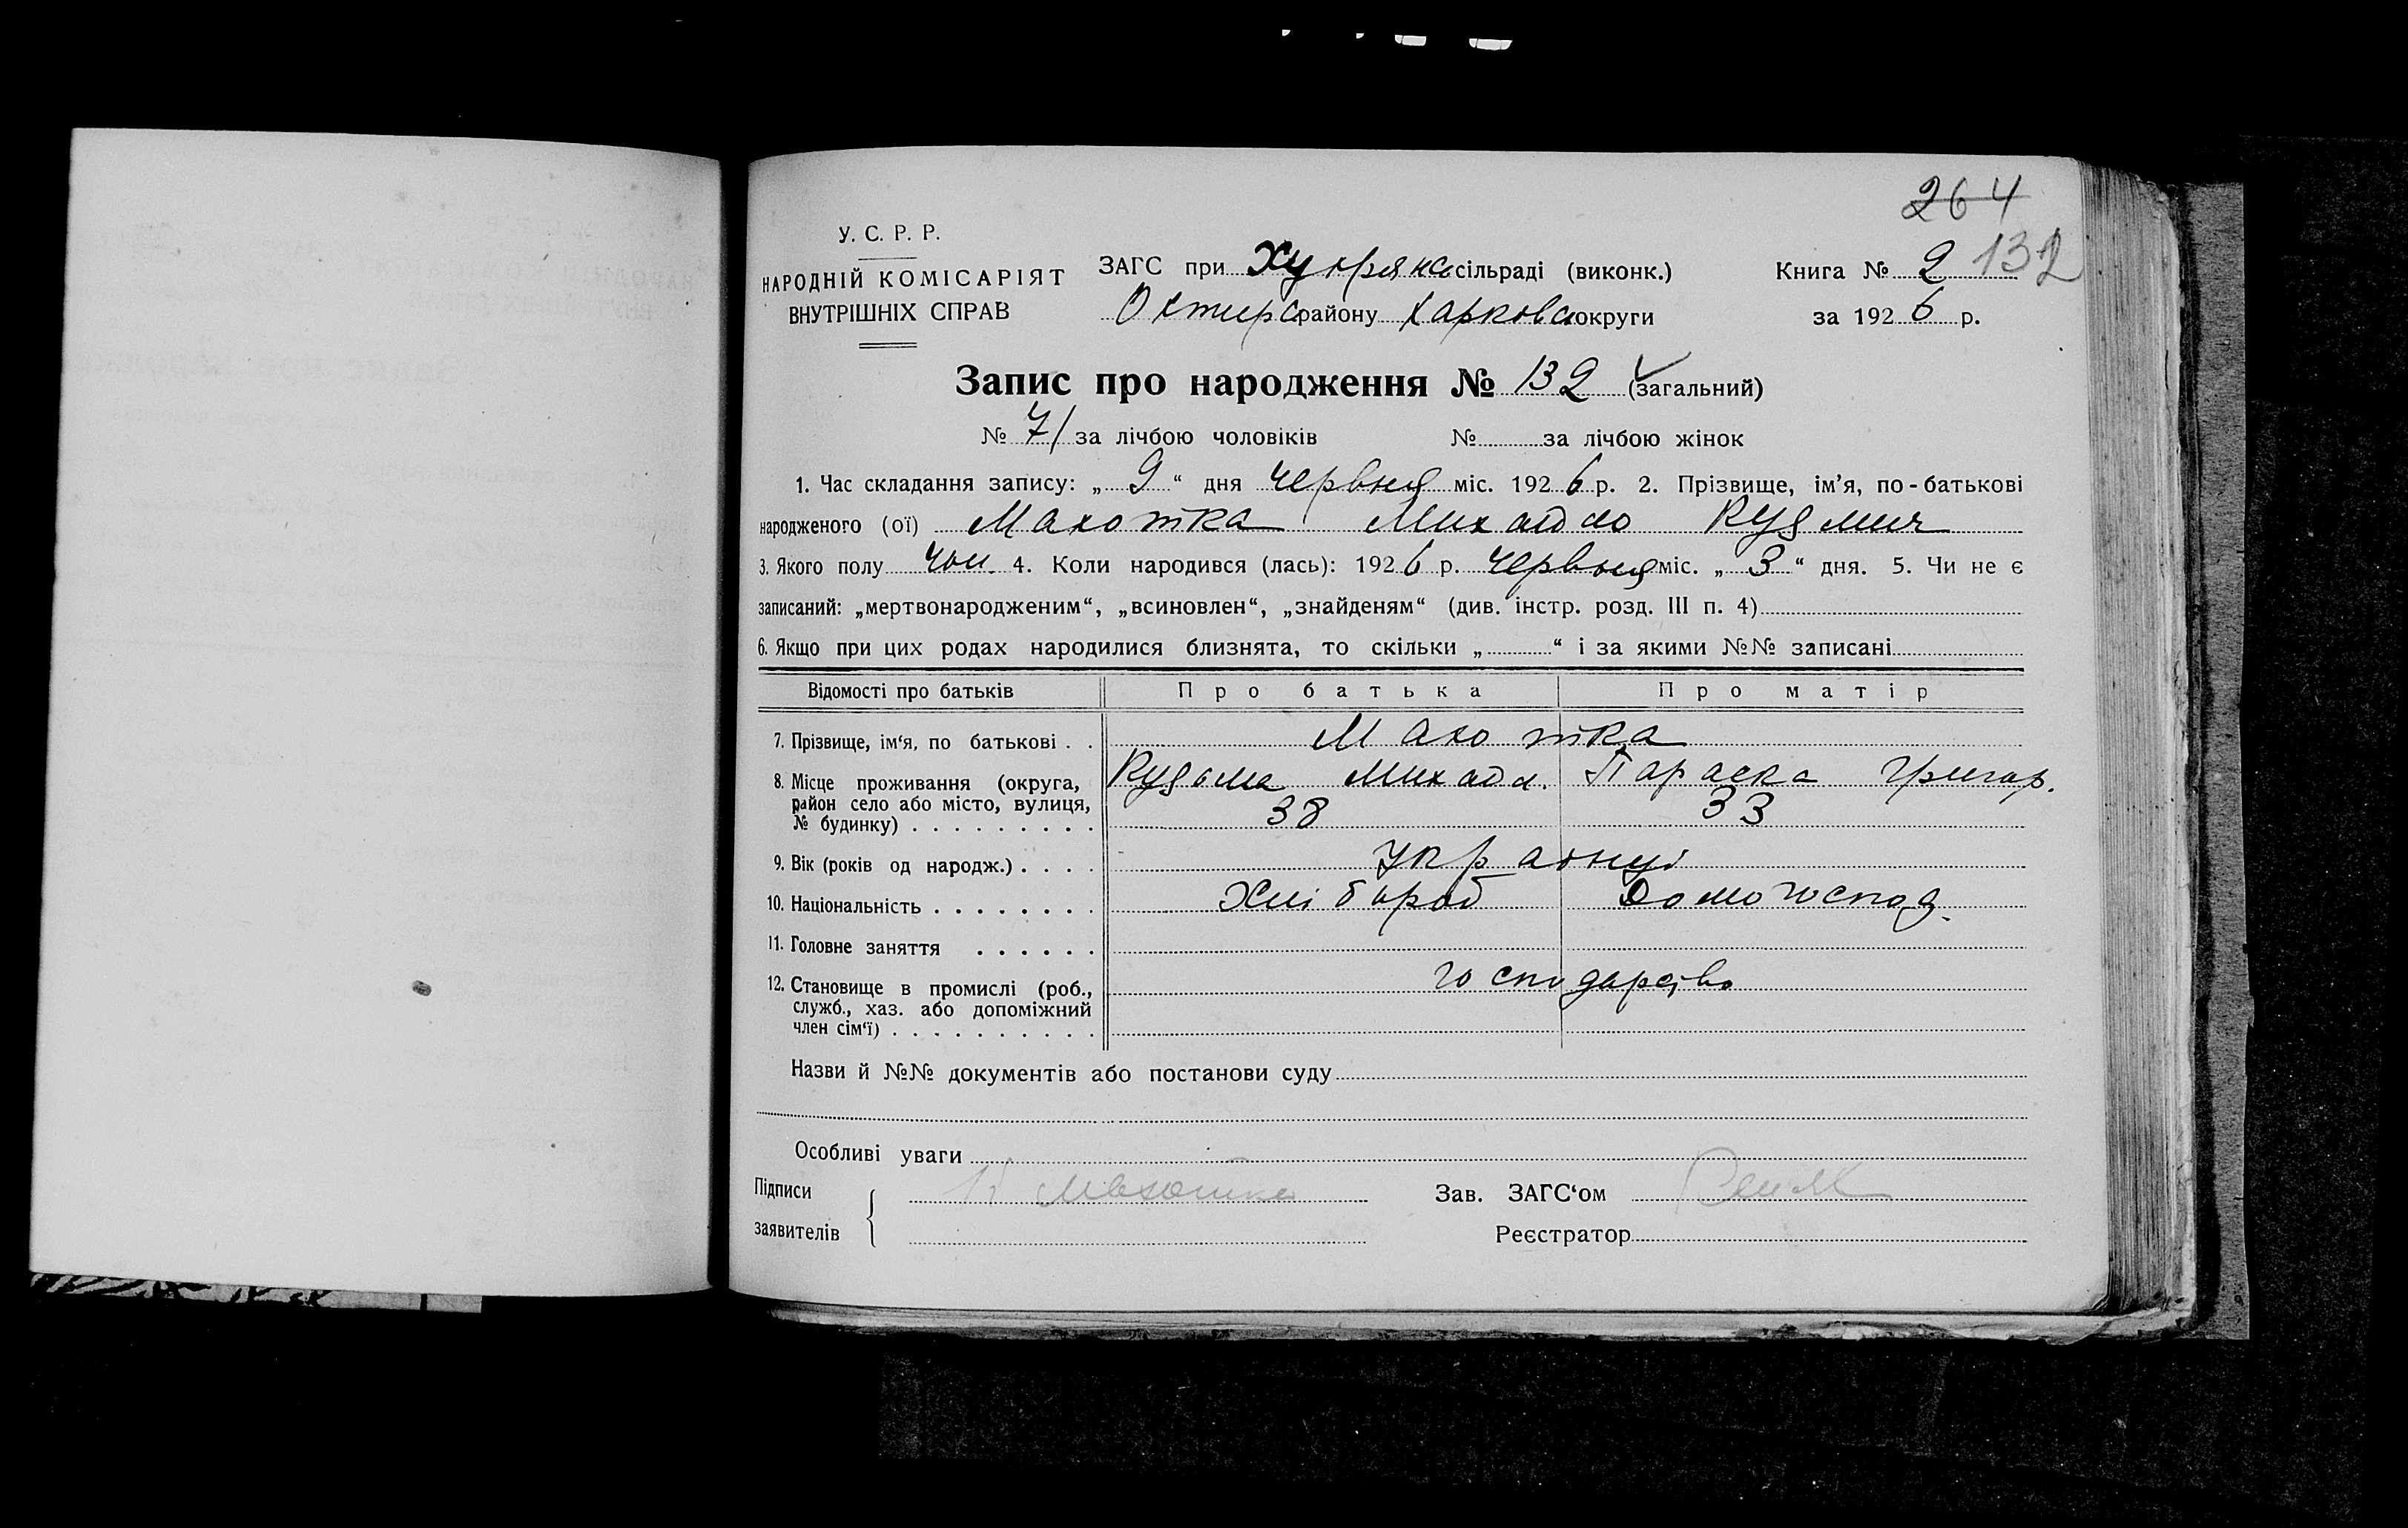 264
У. С. Р. Р.
НАРОДНІЙ КОМІСАРІЯТ
ВНУТРІШНІХ СПРАВ
ЗАГС при Хухрянс сільраді (виконк.)
Охтирс району Харковс округи
Книга № 2 132
за 1926 р.
Запис про народження № 132 (загальний)
№ 71 за лічбою чоловіків № за лічбою жінок
1. Час складання запису: „ 9 “ дня червня міс. 1926 р. 2. Прізвище, ім’я, по-батькові
народженого (ої) Махотка Михайло Кузмич
3. Якого полу чол. 4. Коли народився (лась): 1926 р. червня міс. „ 3 “ дня. 5. Чи не є
записаний: „мертвонародженим“, „всиновлен“, „знайденям“ (див. інстр. розд. III п. 4)
6. Якщо при цих родах народилися близнята, то скільки „ “ і за якими №№ записані
Відомості про батьків Про батька Про матір
7. Прізвище, ім‘я, по батькові . . Махотка
8. Місце проживання (округа, Кузьма Михайл. Параска Григор.
район село або місто, вулиця,
№ будинку) 38 33
9. Вік (років од народж.) Українці
10. Національність Хлібороб Домогоспод.
11. Головне заняття
12. Становище в промислі (роб., господарство
служб., хаз. або допоміжний
член сім‘ї)
Назви й №№ документів або постанови суду
Особливі уваги
Підписи Махотка Зав. ЗАГС‘ом
заявителів Реєстратор